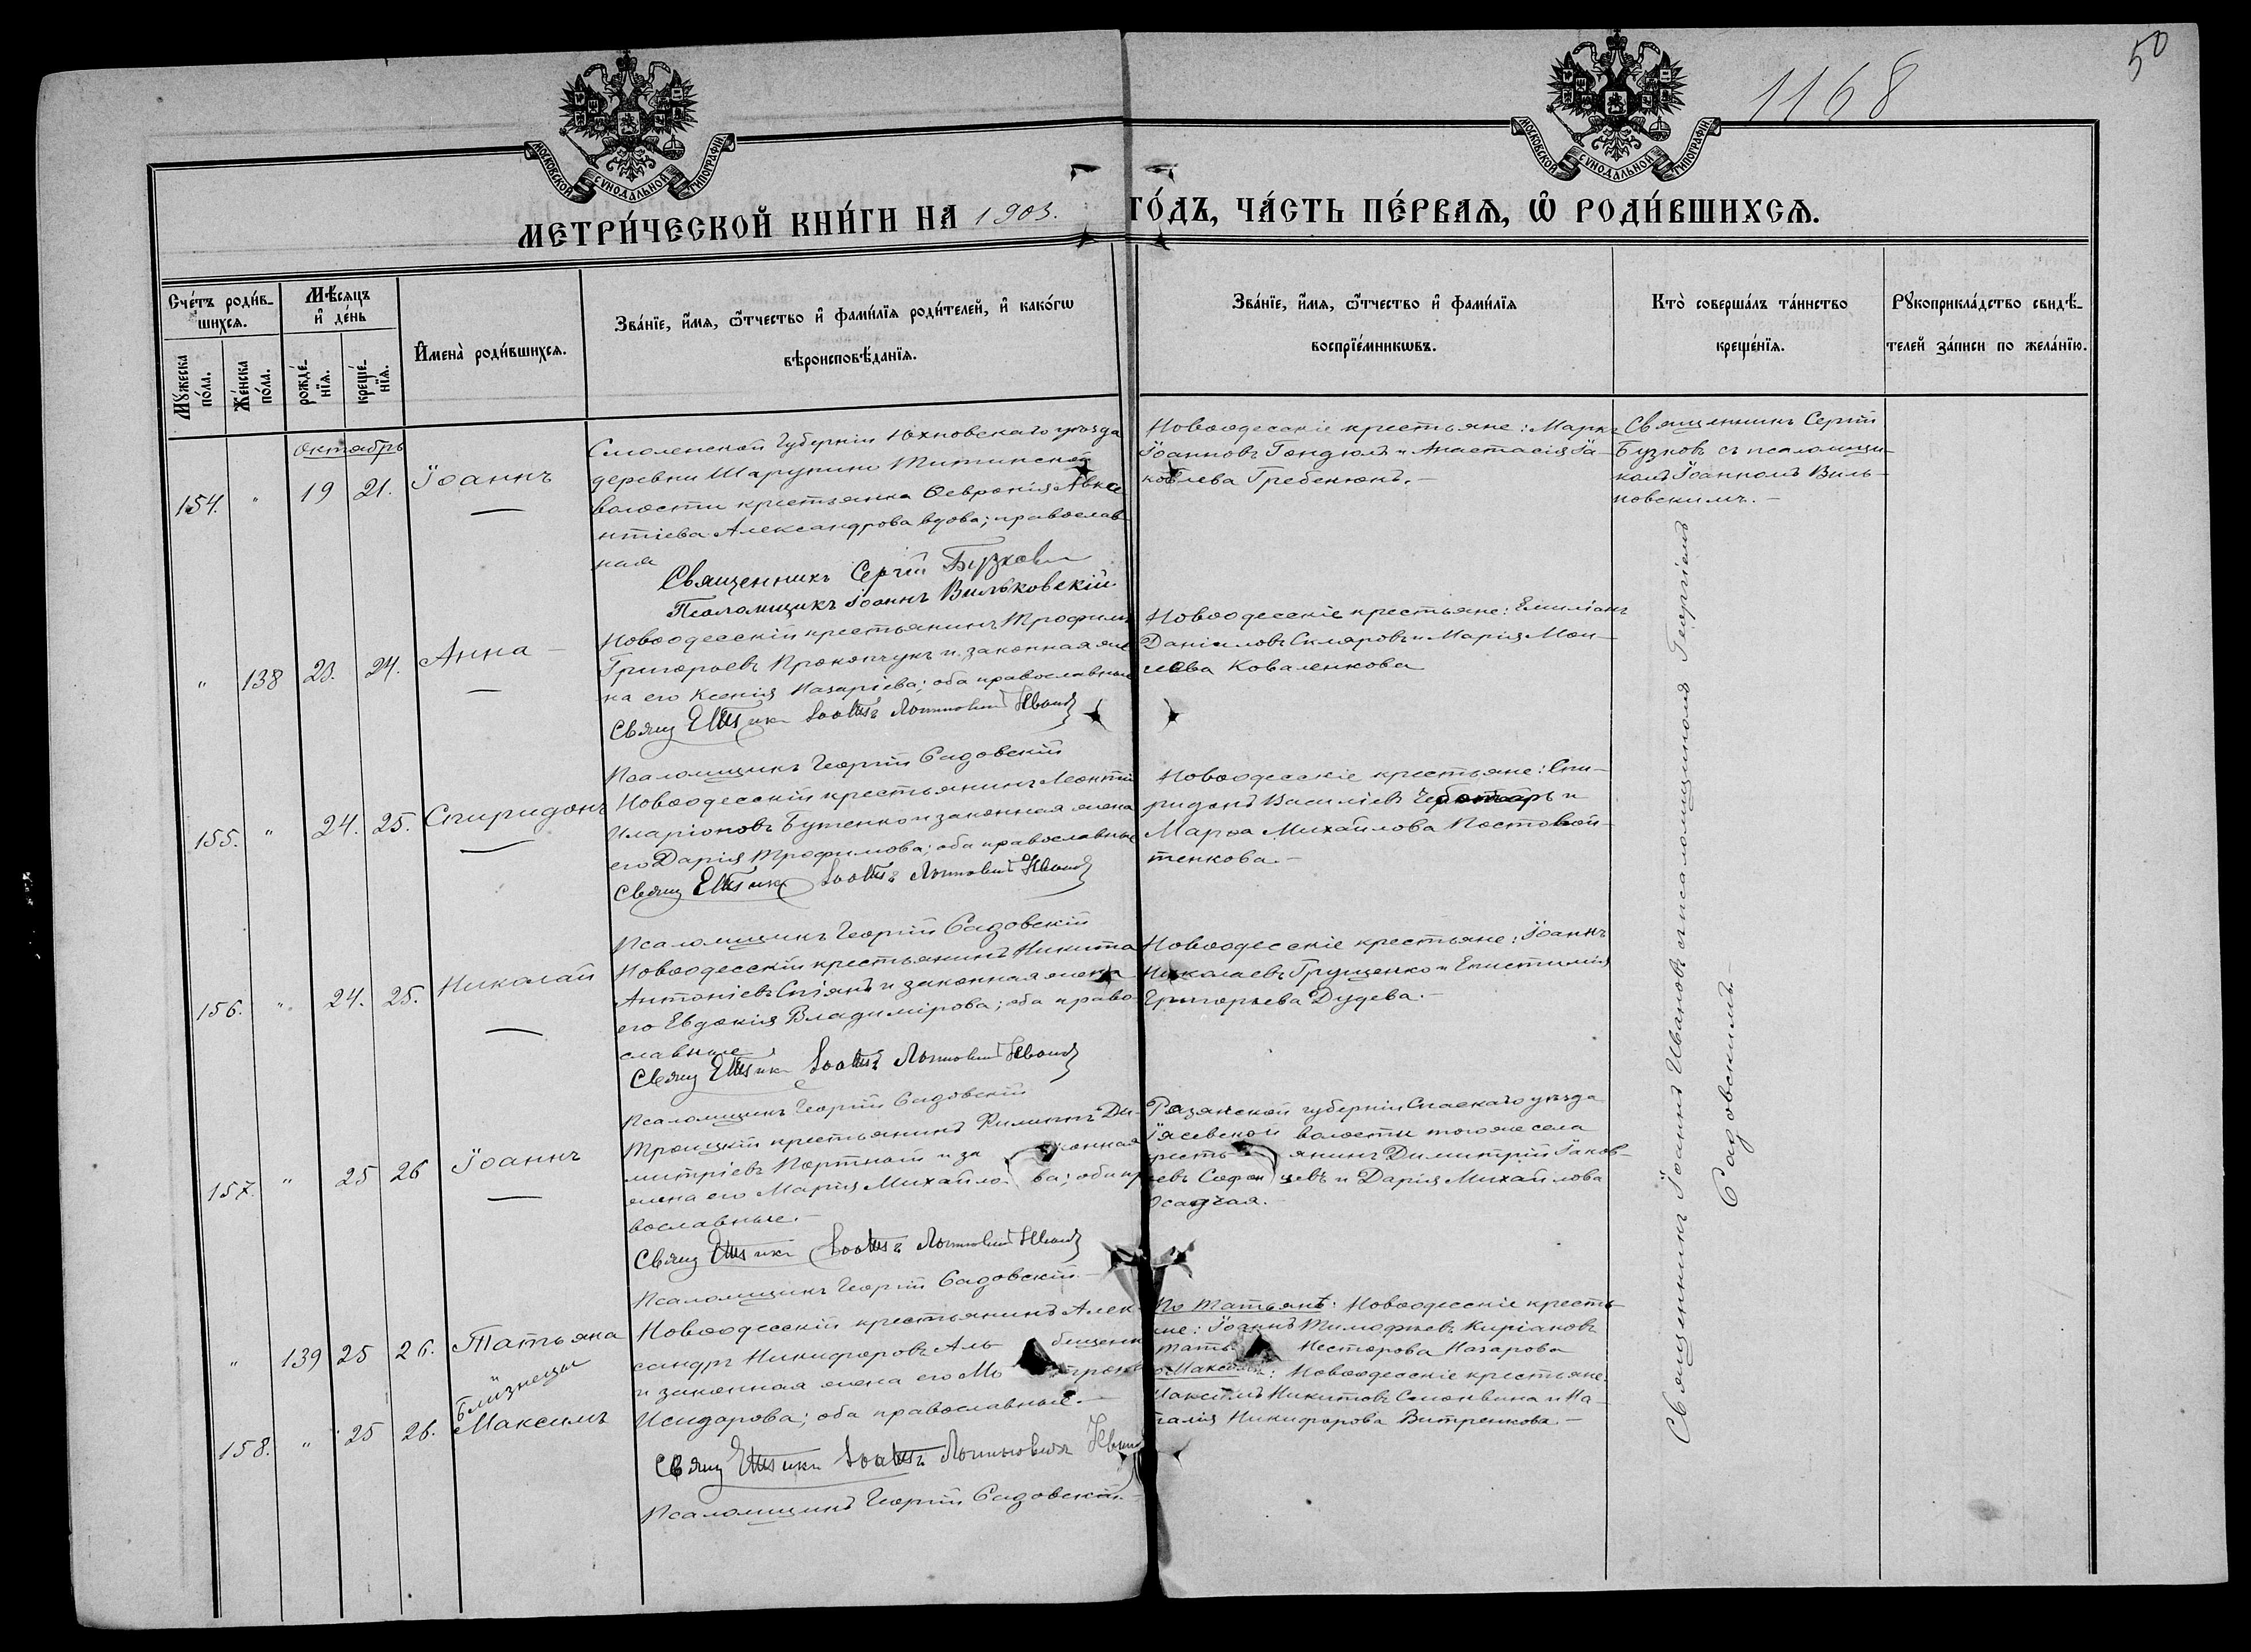 50
1168
МОСКОВСКОЙ СѴНОДАЛЬНОЙ ТИПОГРАФІИ.
МОСКОВСКОЙ СѴНОДАЛЬНОЙ ТИПОГРАФІИ.
МЕТРИ́ЧЕСКОЙ КНИ́ГИ НА 1903. ГО́ДЪ, ЧА́СТЬ ПЕ́РВАѦ, Ѡ҆ РОДИ́ВШИХСѦ.
Сче́тъ роди́в-
шихсѧ.
Мꙋ́жеска
по́ла.
Же́нска
по́ла.
Мѣ́сѧцъ
и҆ де́нь
рожде́-
нїѧ.
креще́-
нїѧ.
И҆мена̀ роди́вшихсѧ.
Зва́нїе, и҆́мѧ, ѻ҆́тчество и҆ фами́лїѧ роди́телей, и҆ како́гѡ
вѣроисповѣ́данїѧ.
Зва́нїе, и҆́мѧ, ѻ҆́тчество и҆ фами́лїѧ
воспрїе́мникѡвъ.
Кто̀ соверша́лъ та́инство
креще́нїѧ.
Рꙋкоприкла́дство свидѣ́-
телей за́писи по жела́нїю.
Октябрь
154. " 19 21. Іоаннъ
Смоленской Губерніи Юхновскаго уѣзда
деревни Шарупино
волости крестьянка Ѳевронія Авксе
нтіева Александрова вдова; православ
ная
Священникъ Сергій Бузковъ
Псаломщикъ Іоаннъ Вильковскій.
Новоодесскіе крестьяне: Маркъ
Іоанновъ Гондюлъ и Анастасія Іа-
ковлева Гребенюкъ. -
Священникъ Сергій
Бузковъ съ псаломщи-
комъ Іоанномъ Виль-
ковскимъ. -
" 138 23. 24. Анна -
Новоодесскій крестьянинъ Трофимъ
Григорьевъ Прокопчукъ и законная же
на его Ксенія Назаріева; оба православные
Псаломщикъ Георгій Садовскій
Новоодесскіе крестьяне: Емиліанъ
Даніиловъ Скляровъ и Марія Мои-
сеева Коваленкова
155. " 24. 25. Спиридонъ
Новоодесскій крестьянинъ Леонтій
Иларіоновъ Бутенко и законная жена
его Дарія Трофимова; оба православные
Псаломщикъ Георгій Садовскій
Новоодесскіе крестьяне: Спи-
ридонъ Василіевъ Чеботарь и
Марѳа Михайлова Постовой-
тенкова. -
156. " 24. 25. Николай
Новоодесскій крестьянинъ Никита
Антоніевъ Спіянъ и законная жена
его Евдокія Владимірова; оба право-
славные
Псаломщикъ Георгій Садовскій
Новоодесскіе крестьяне: Іоаннъ
Николаевъ Грущенко и Епистимія
Григорьева Дудева. -
157. " 25 26 Іоаннъ
Троицкій крестьянинъ Филиппъ Ди-
митріевъ Портной и за конная
жена его Марія Михайло ва; оба пр
вославные. -
Псаломщикъ Георгій Садовскій -
Рязанской губерніи Спасскаго уѣзда
волости того же села
кресть янинъ Димитрій Іаков-
левъ и Дарія Михайлова
Осадчая. -
" 139 25 26. Татьяна
Близнецы
158. " 25 26. Максимъ
Новоодесскій крестьянинъ Алек
сандръ Никифоровъ Аль бещенк
и законная жена его Ма трона
Исидорова; оба православные. -
Псаломщикъ Георгій Садовскій. -
По Татьянѣ: Новоодесскіе кресть
яне: Іоаннъ Тимофѣевъ Киріаковъ
Тать Несторова Назарова
Новоодесскіе крестьяне:
Максимъ Никитовъ и На-
талія Никифорова Витренкова. -
Священникъ Іоаннъ Ивановъ съ псаломщикомъ Георгіемъ
Садовскимъ. -